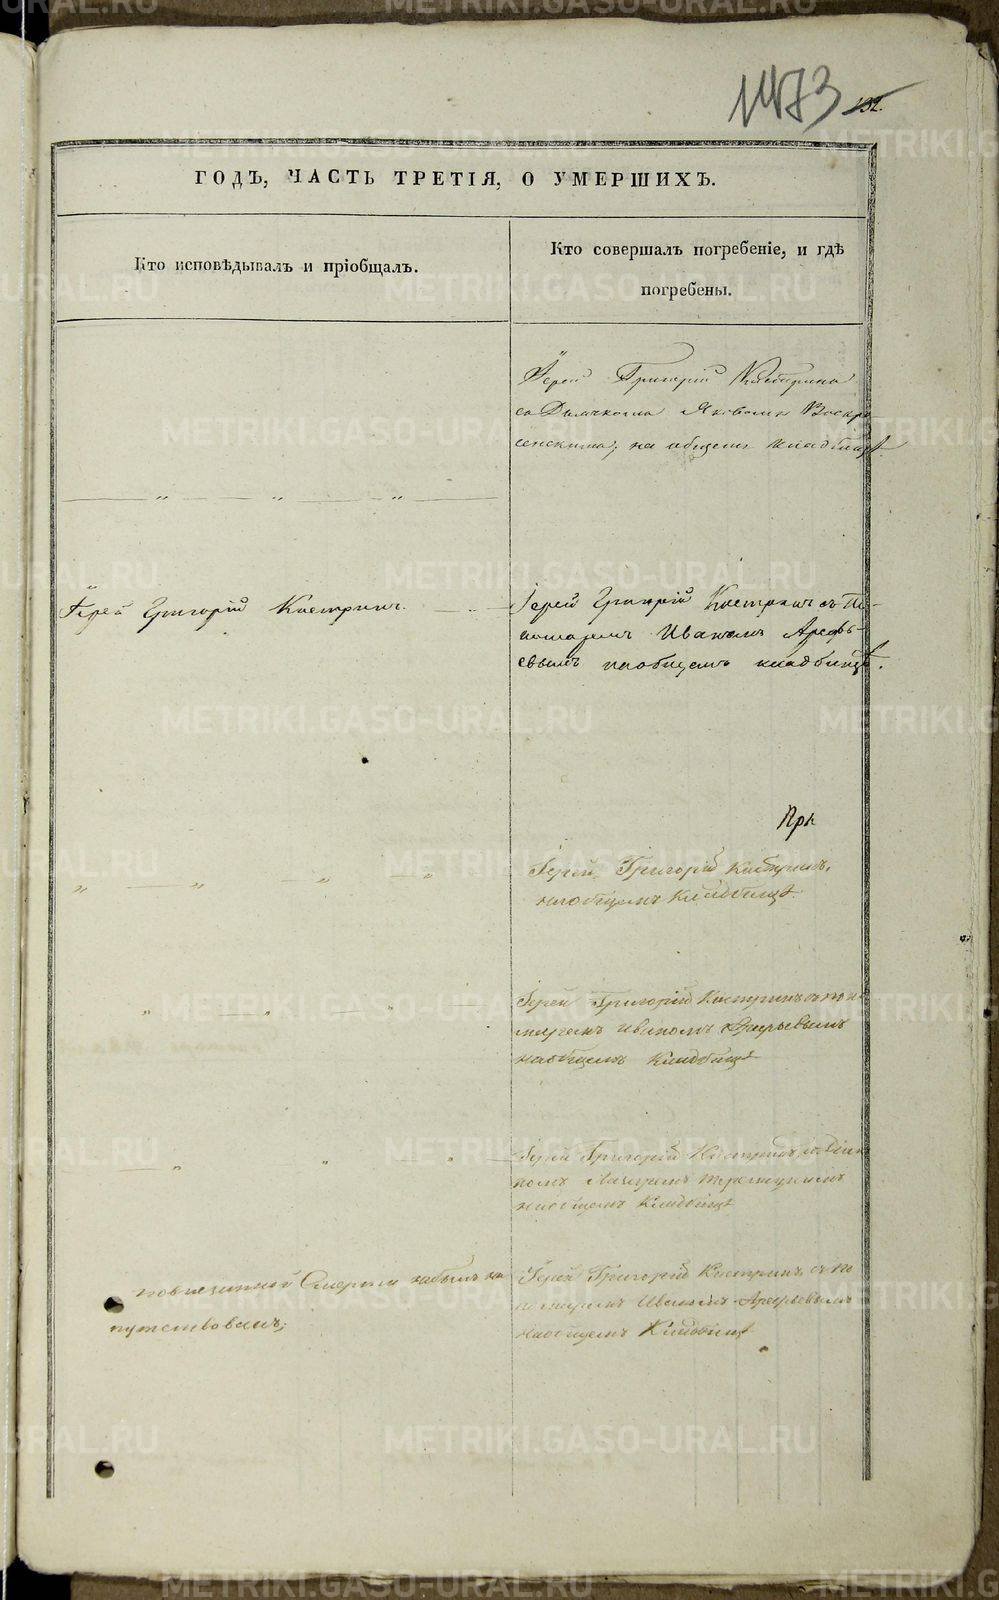 1473 132.
ГОДЪ, ЧАСТЬ ТРЕТІЯ, О УМЕРШИХЪ.
Кто исповѣдывалъ и пріобщалъ.
Кто совершалъ погребеніе, и гдѣ
погребены.
Іерей Григорій Костринъ
со Дьячкомъ Яковомъ Воскре
сенскимъ; на общемъ кладбищѣ
Іерей Григорій Костринъ.
Іерей Григорій Костринъ съ По-
номаремъ Иваномъ Арефь-
евымъ на общемъ кладбищѣ.
При
Іерей Григорій Костринъ,
на общемъ кладбищѣ.
Іерей Григорій Костринъ съ поно
маремъ Иваномъ Арефьевымъ
на общемъ кладбищѣ
Іерей Григорій Костринъ, съ Діако
номъ
на общемъ кладбищѣ
по внезапной Смерти не былъ на
путствованъ;
Іерей Григорій Костринъ съ По
номаремъ Иваномъ Арефьевымъ
на общемъ кладбищѣ
METRIKI.GASO-URAL.RU